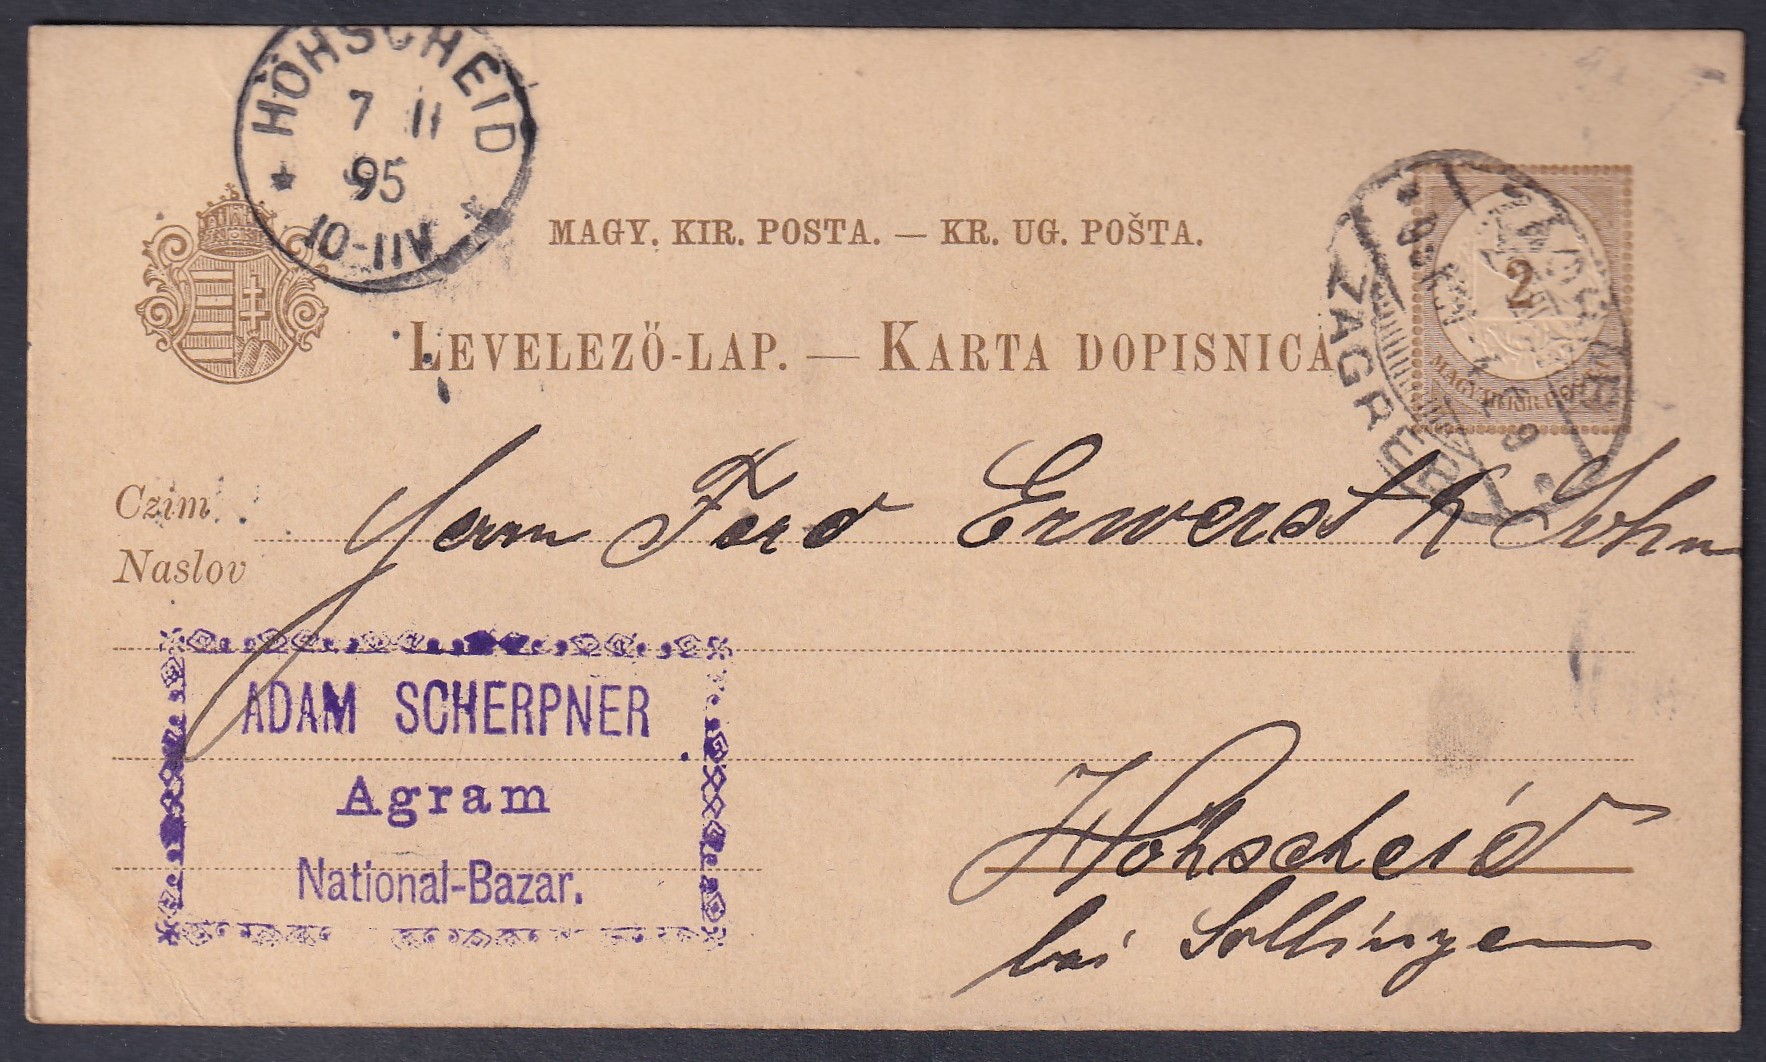 HÖHSCHEID
7 11
95
10-11V
MAGY. KIR. POSTA. — KR. UG. POŠTA.
LEVELEZŐ-LAP. — KARTA DOPISNICA
2
ZAGREB
Czim
Naslov
Herrn Ferd Erwerst & Sohn
ADAM SCHERPNER
Agram
National-Bazar.
Höhscheid
bei Sollingen